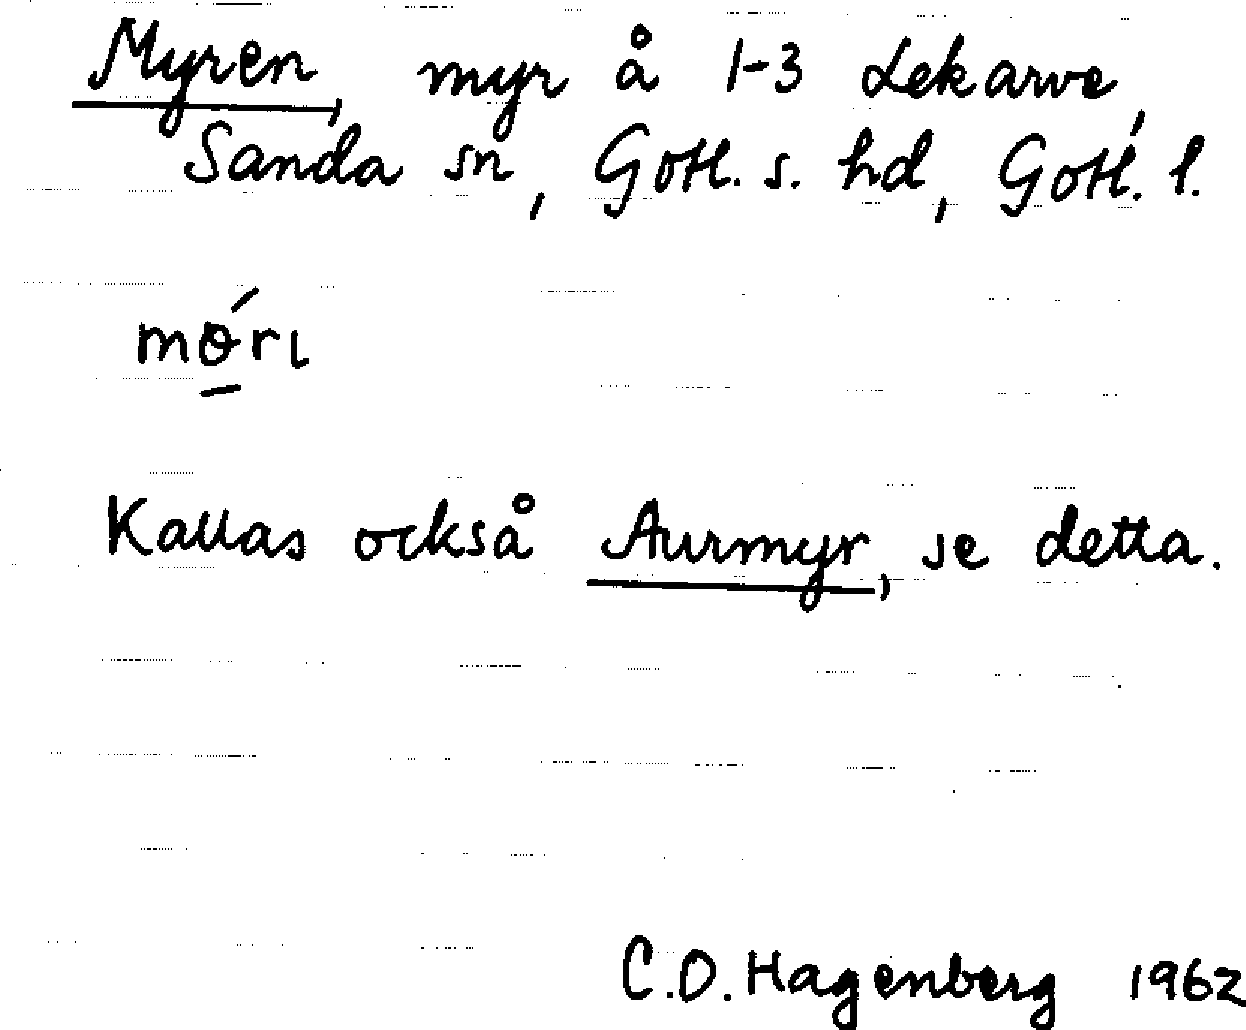 Myren, myr å 1-3 Lekarve,
Sanda sn, Gotl. s. hd, Gotl. l.
mɵ́rı
Kallas också Aurmyr, se detta.
C.O. Hagenberg 1962